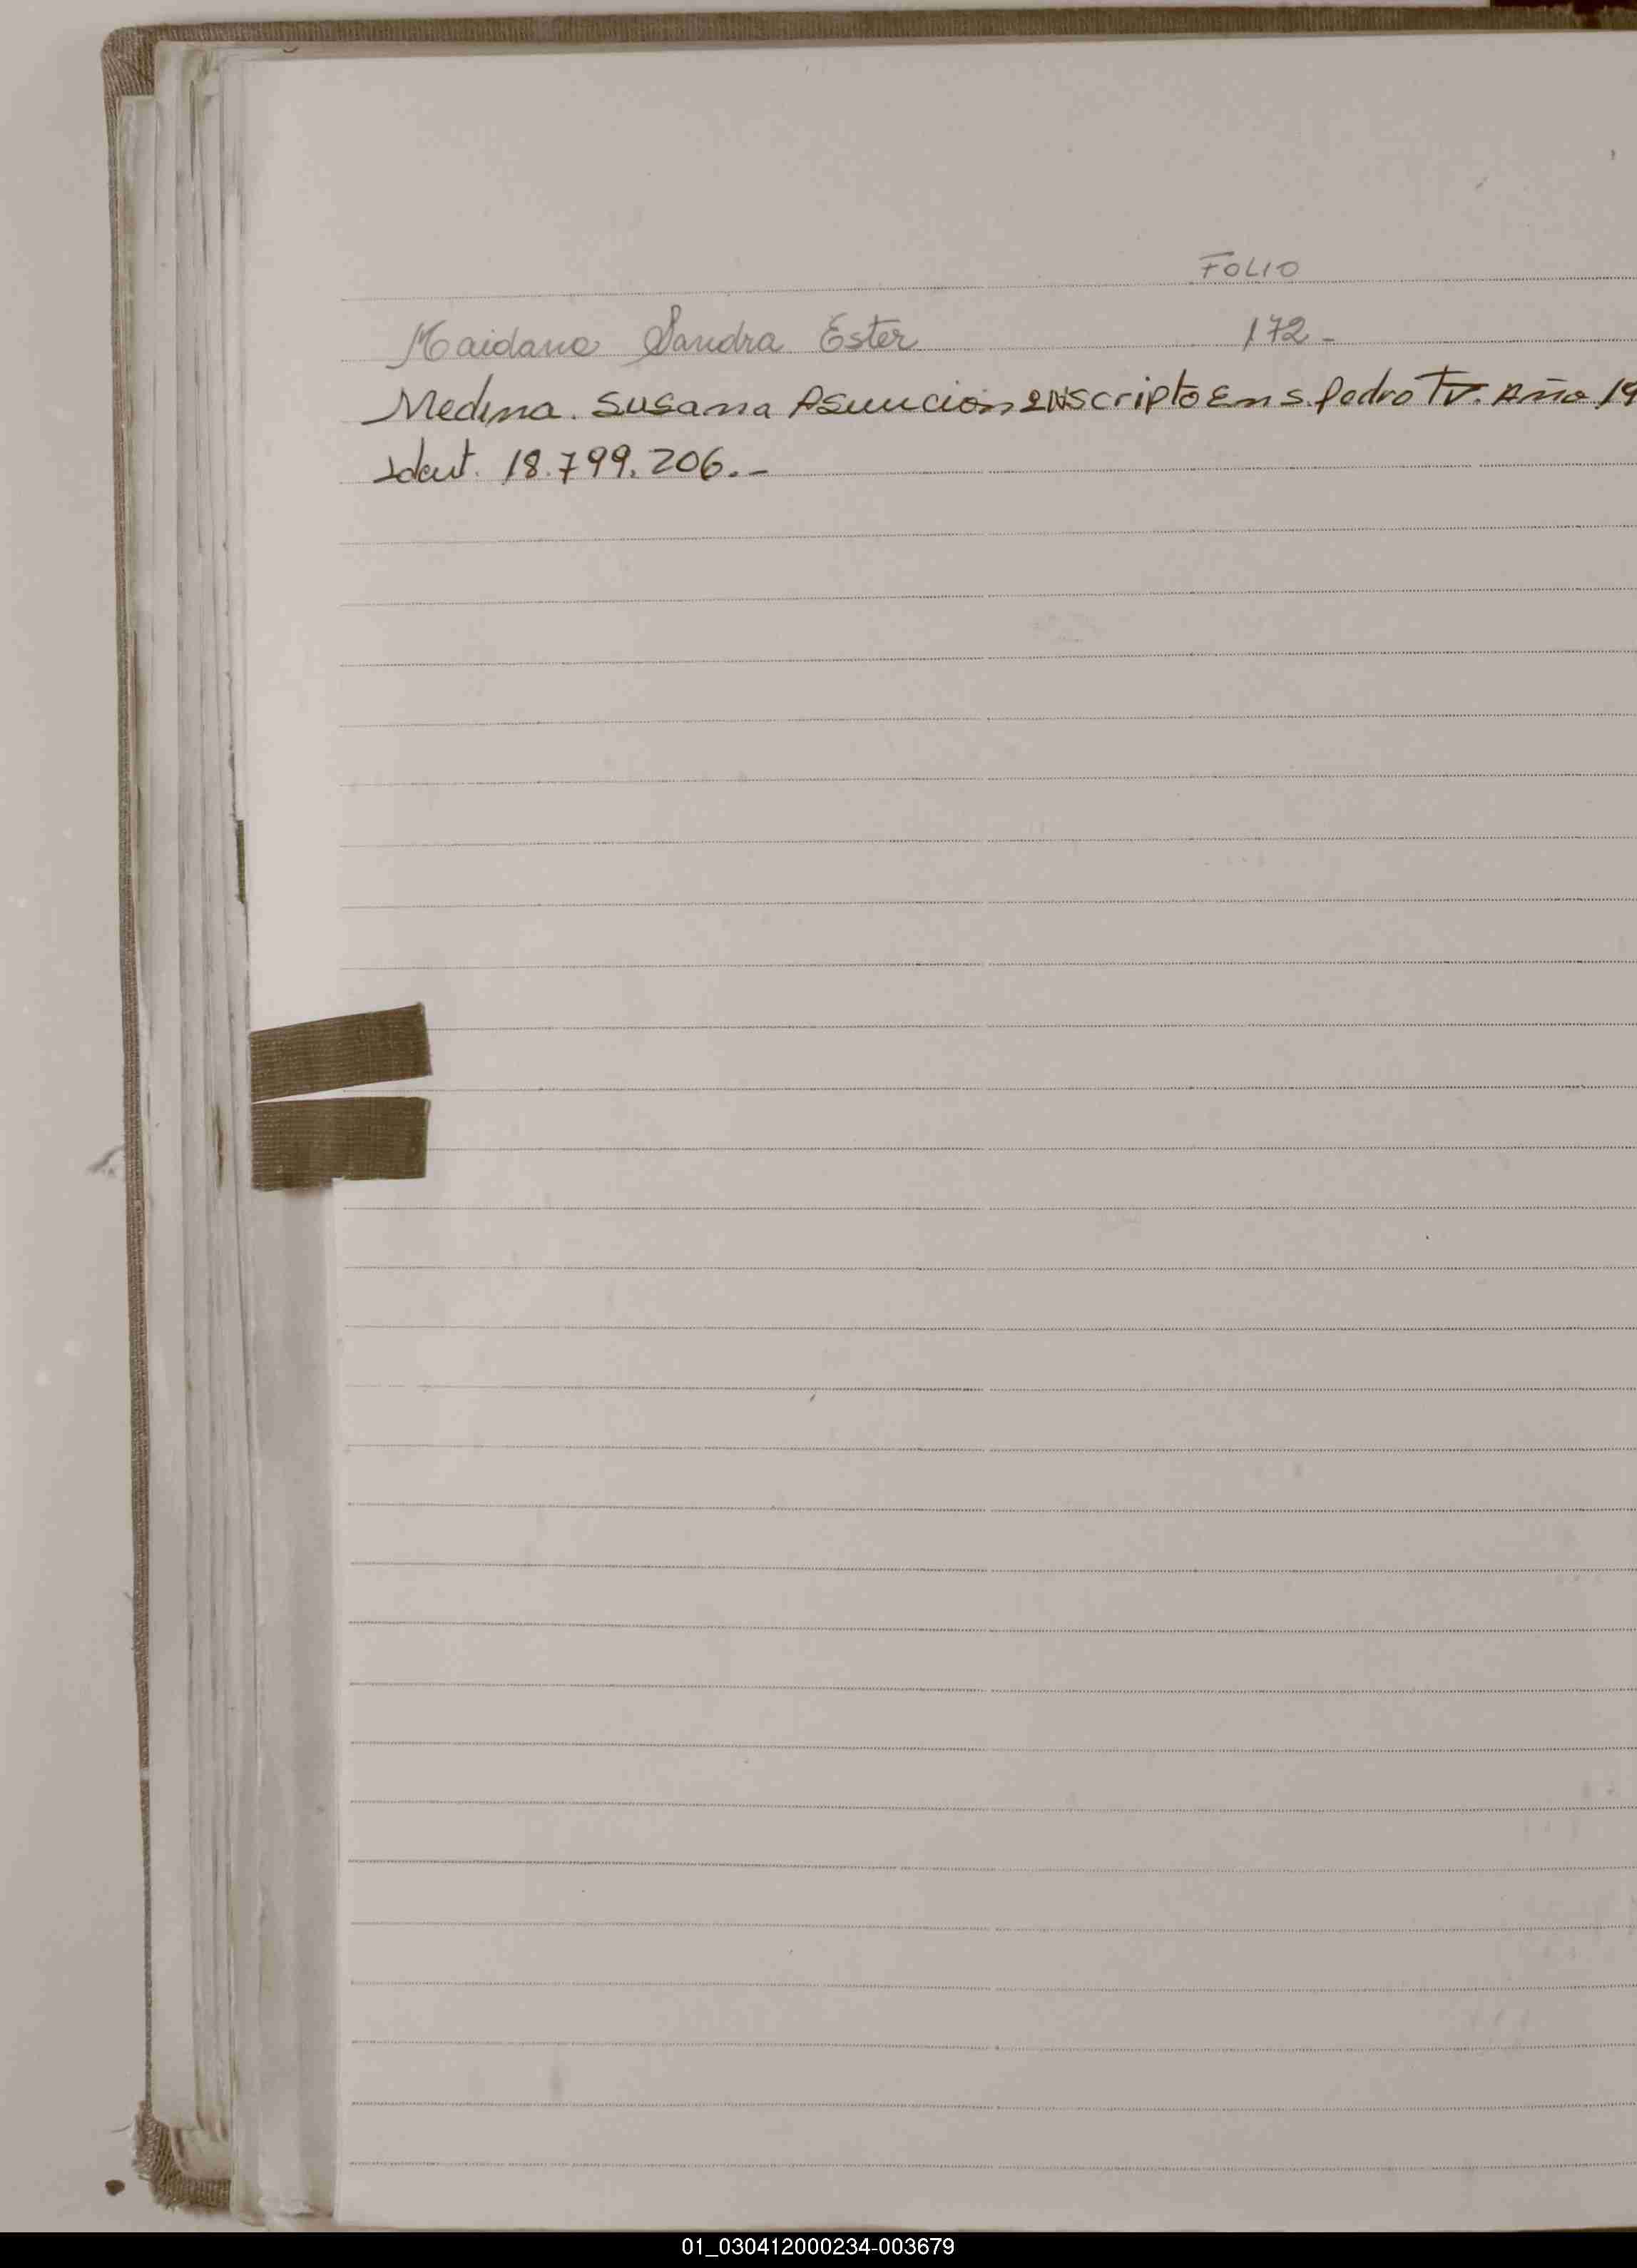 FOLIO
Maidana Sandra Ester 172-
Medina. Susana Asunción inscripto En S. Pedro TV. Año 19
Ident. 18.799.206.-
01_030412000234-003679